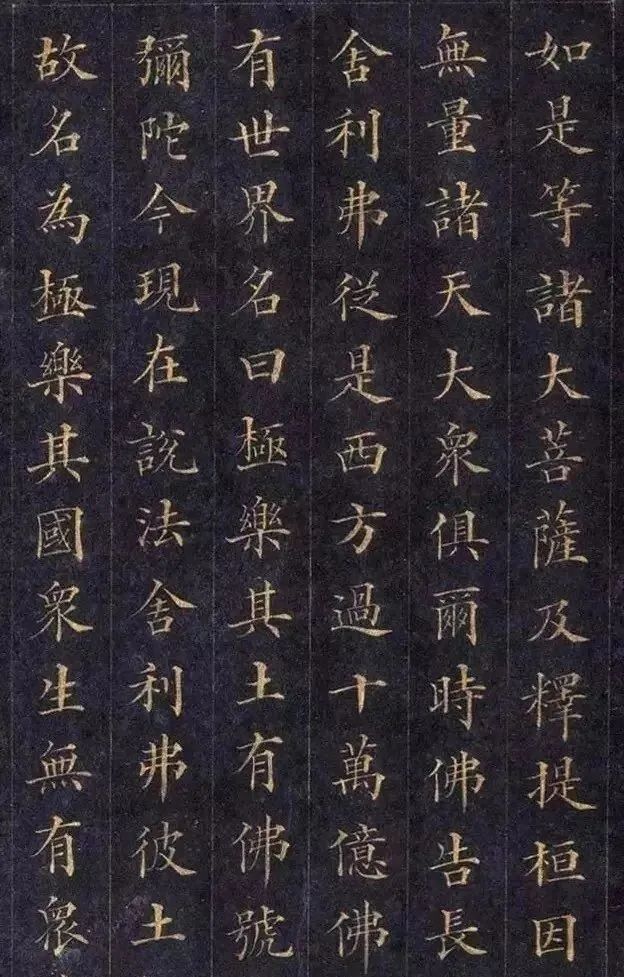 如是等諸大菩薩及釋提桓因
無量諸天大衆俱爾時佛告長
舍利弗從是西方過十萬億佛
有世界名曰極樂其土有佛號
彌陀今現在說法舍利弗彼土
故名為極樂其國衆生無有衆